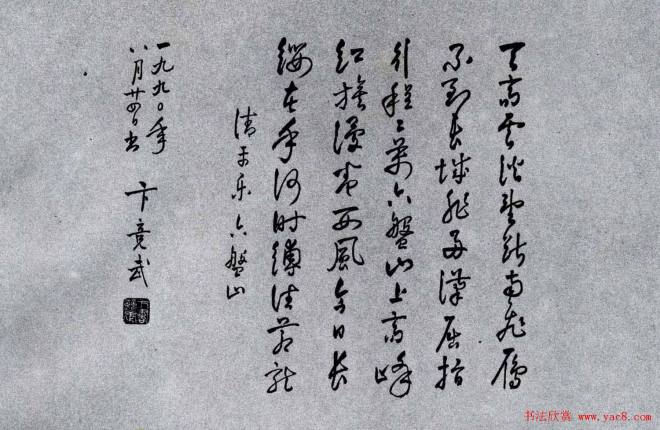 天高云淡望断南飞雁
不到长城非好汉屈指
行程二萬六盤山上高峰
红旗漫卷西风今日长
缨在手何时缚住苍龙
清平乐六盤山
一九九〇年
八月廿四日书
卞竟武
书法欣赏 www.yac8.com